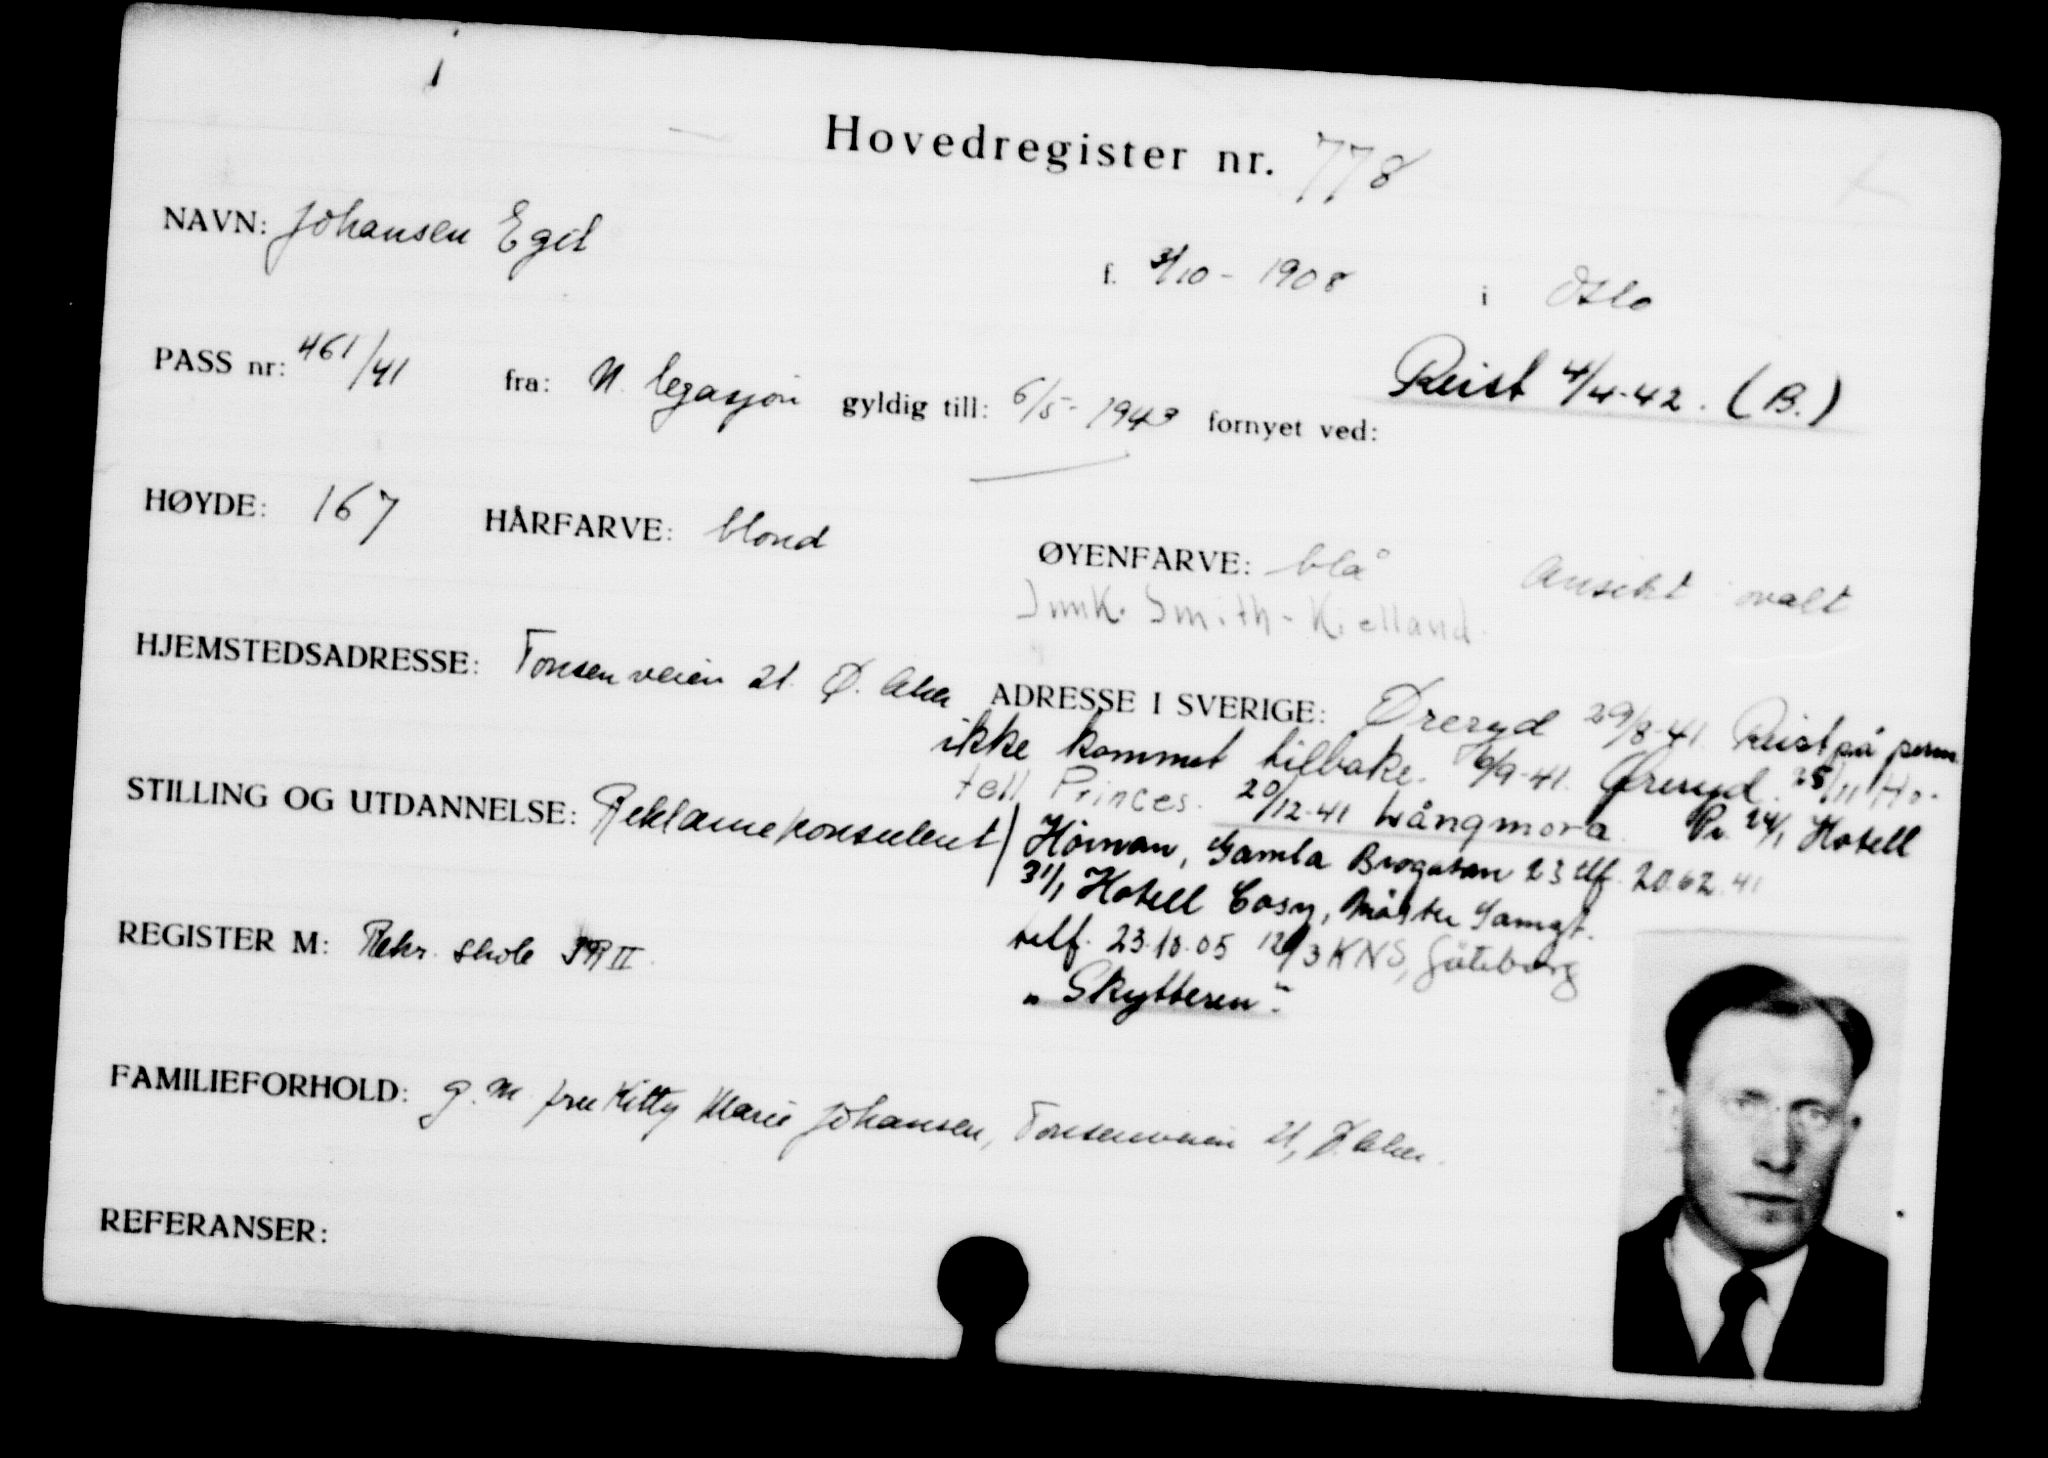 Hovedregister nr. 778
NAVN: Johansen Egil f. 3/10 - 1908 i Oslo
PASS nr: 461/41 fra: N. legasjon gyldig till: 6/5 - 1943 fornyet ved: Reist 4/4-42. (B.)
HØYDE: 167 HÅRFARVE: blond ØYENFARVE: blå Ansikt ovalt
Smith-Kielland.
HJEMSTEDSADRESSE: Tonsenveien 21. Ø. Aker ADRESSE I SVERIGE: Øreryd 29/8-41. Reist på perm.
ikke kommet tilbake. 6/9-41. Øreryd. 25/11 Ho-
tell Princes. 20/12-41 Långmora. Pr. 24/1 Hotell
STILLING OG UTDANNELSE: Reklamekonsulent Hörnan, Gamla Brogatan 23 tlf. 20.62.41
31/1 Hotell Cosy, Mäster Samgt.
telf. 23.10.05 12/3 KNS, Göteborg
REGISTER M: Rekr. skole II.
„Skytteren".
FAMILIEFORHOLD: g. m. fru Kitty Marie Johansen, Tonsenveien 21, Ø. Aker.
REFERANSER: